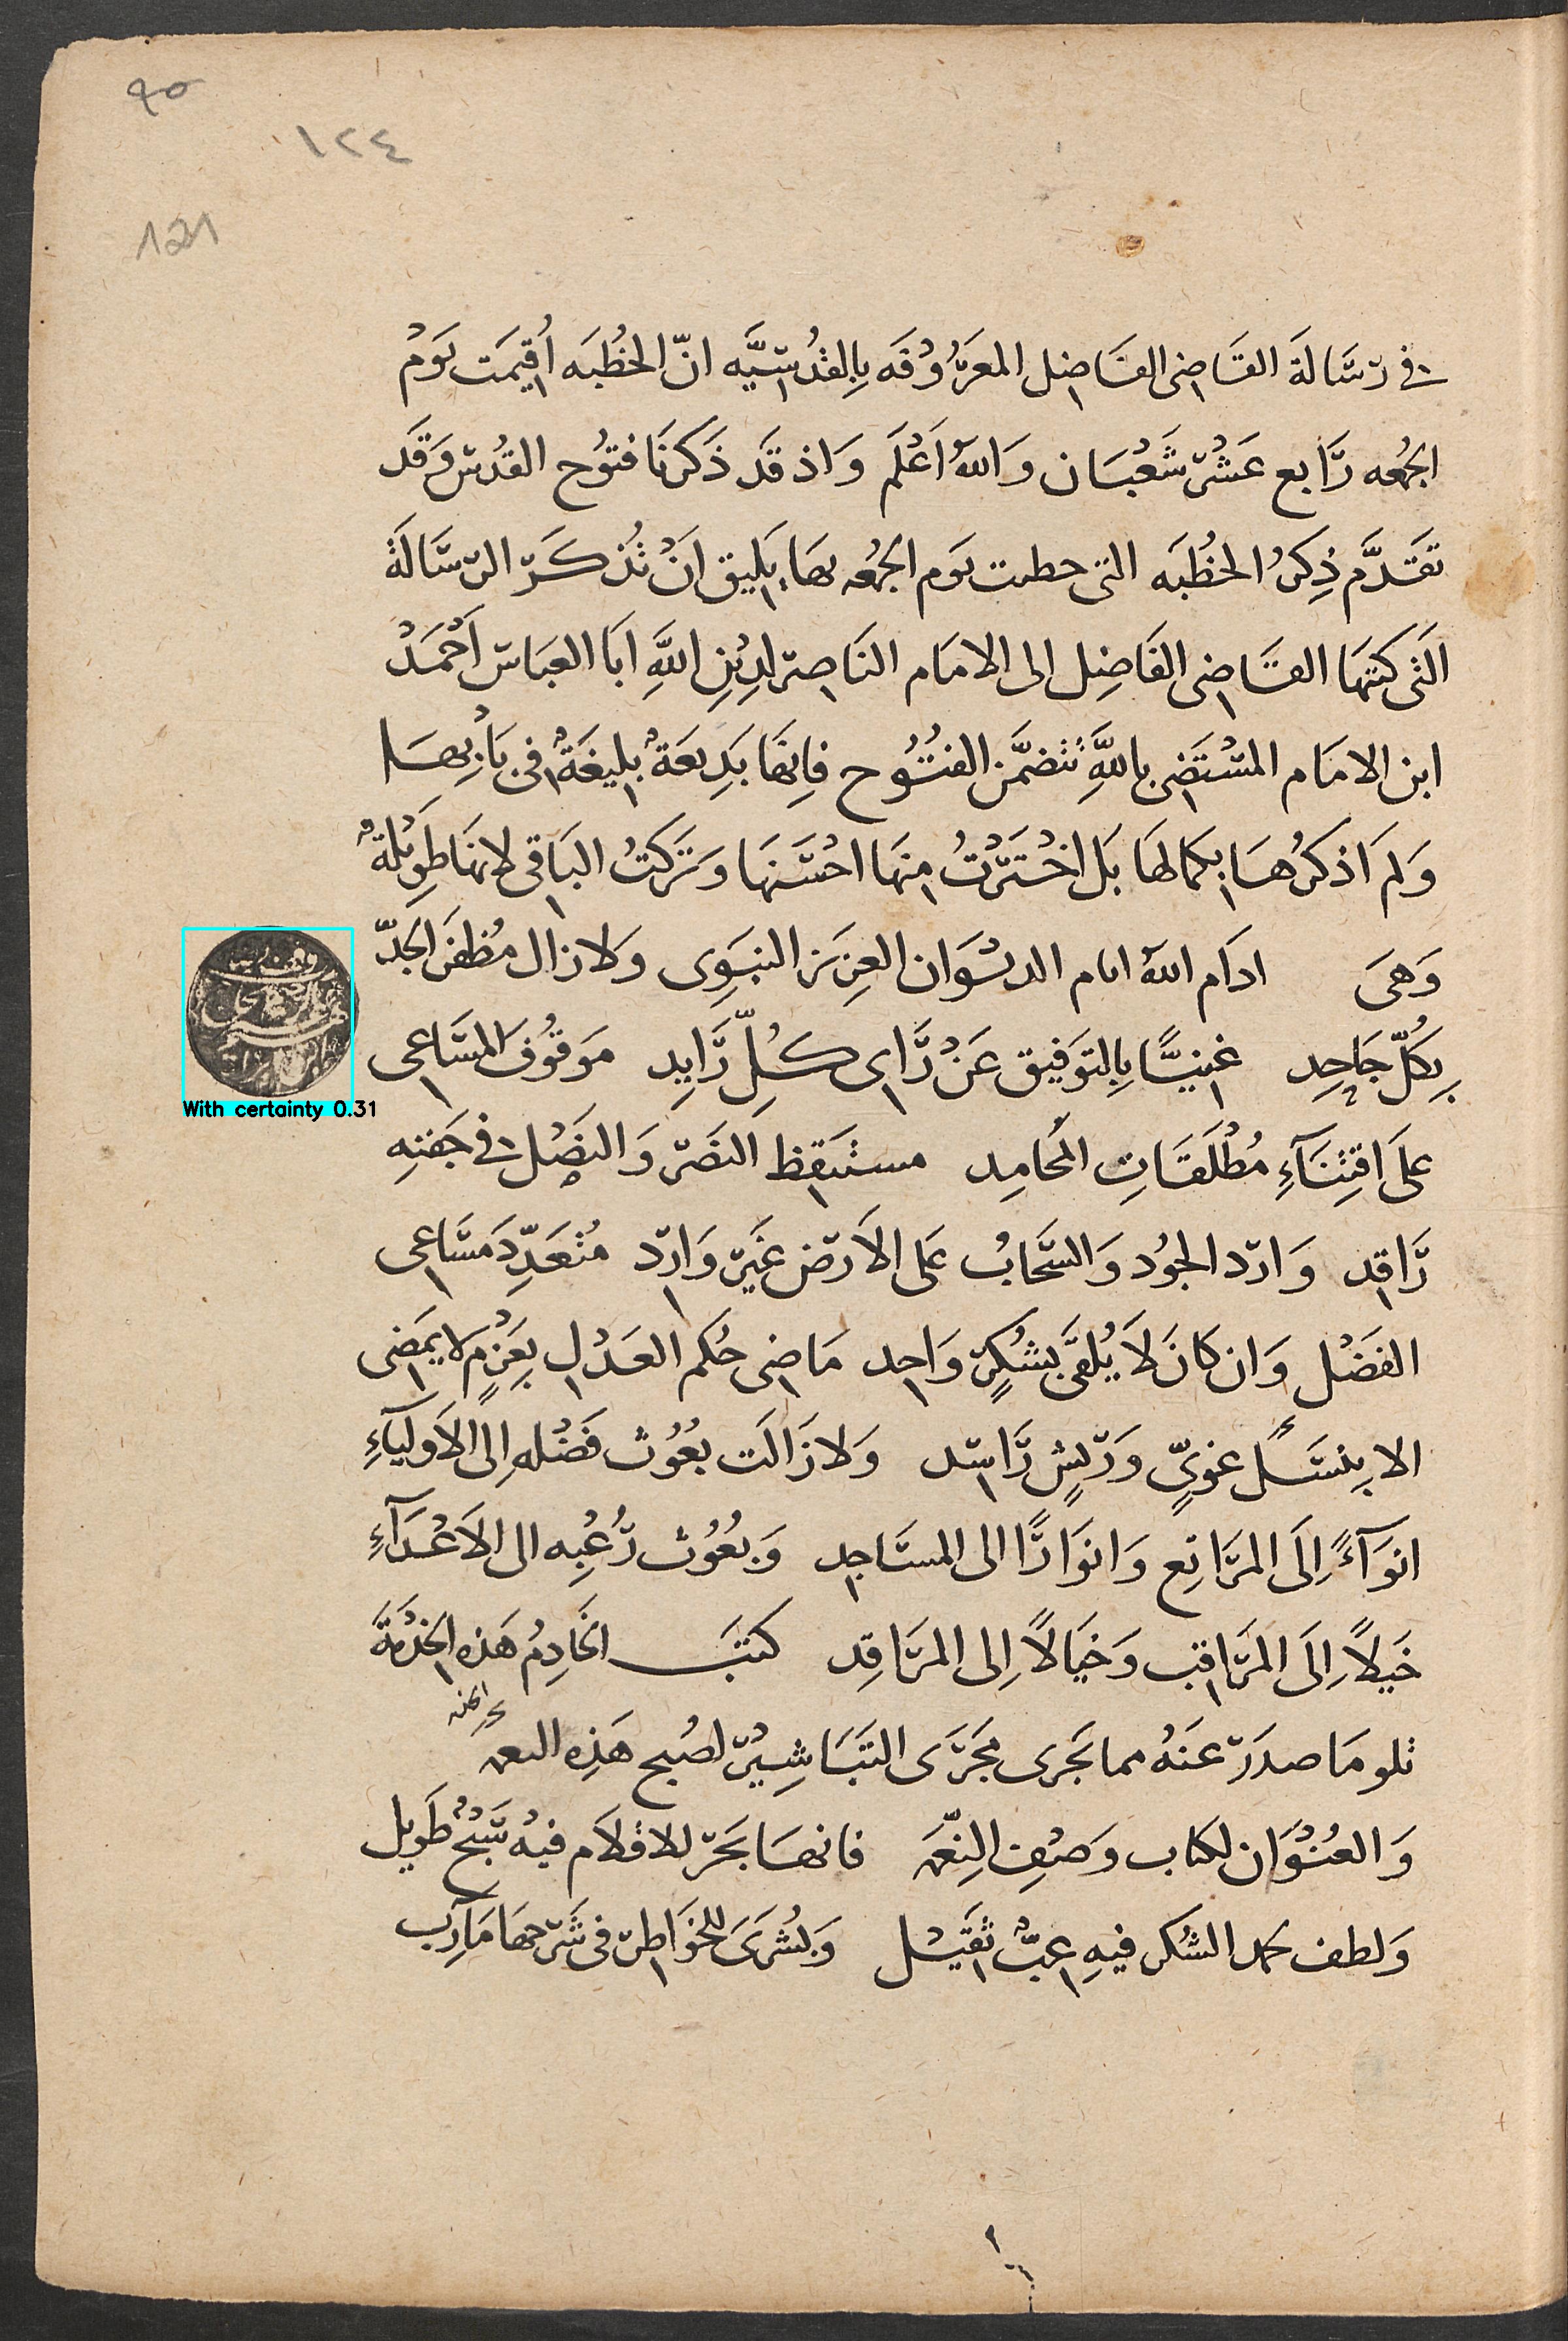 ٩٥
١٢٤
121
في رسَالَة القَاضى الفَاضِل المعَرُوْفَه بِالقُدْسِيَّه انّ الخُطْبَه اُقِيمَت يَوْمَ
الجُمْعه رَابع عَشْر شَعْبَان وَاللهُ اَعْلَم وَاذ قَد ذَكَرنَا فتُوْح القُدس وَقَد
تَقَدَّم ذِكرُ الخُطْبَه التى خطبت يَوم الجُمُعه بهَا يَلِيق اَنْ نُذكَرَ الرسَالَة
التَى كتَبَهَا القَاضِى الفَاضِل الى الامَام النَاصر لدِيْنِ اللَّهِ ابَا العبَاس اَحْمَدْ
ابن الامَام المسْتَضى باللَّهِ تتضمَّن الفتُوُح فانهَا بَدِيعَةٌ بليغَةٌ فى بَابِهَا
وَلَم اَذكرُهَا بكمالهَا بَل اخْتَرْتُ منهَا احْسَنهَا وَتركتُ البَاقى لانهَا طَوِيْلةٌ
وَهىَ ادَام اللهُ ايام الديْوَان العَزِيز النبَوِى وَلا زال مُظفَر الجدّ
بِكُلّ جَاحِد غنيًّا بِالتوَفيق عَنْ رَاى كُلِّ رَايد مَوقُوفَ المسَاعى
عَلَى اقِتْنَآءِ مُطْلَقَاتِ المحَامِد مستَيقظ النَصْر وَالنصْل فى جَفنِه
رَاقِد وَارد الجوُد وَالسَّحَابُ عَلى الاَرض غَيْر وَارد متعَدِّدَ مَسَاعى
الفَضْل وَان كَانَ لاَ يُلقَى بشُكرٍ وَاحِد مَاضِى حُكم العَدْل بعَزْمٍ لا يمَضى
الا بنسَلٍ غوىٍّ وَريشٍ رَاشد وَلا زَالَت بعُوُث فَضْلِهِ اِلى الاَوليَآءِ
انوَآءً اِلَى المرَاتِع وَانوَارًا الى المسَاجِد وَبعُوُث رُعْبِه الى الاَعْدَآءِ
خَيلاً اِلَى المرَاقِب وَخيَالاً اِلى المرَاقِد كَتبَ الخَادِمُ هَذِه الخِدْمَةَ
تلو مَا صدَرَ عَنهُ مما يَجَرى مجَرَى التَبَاشِيْر لصُبح هَذِه
وَالعُنْوَان لكتاب وَصْفِ النِّعَمَه فانهَا بَحَر للاقلاَم فيهْ سَبْحٌ طَوِيل
وَلطف الشكر فيهِ عِبٌ ثقَيْل وَبُشرَى للخَوَاطِر فى شَرحهَا مَآرِب